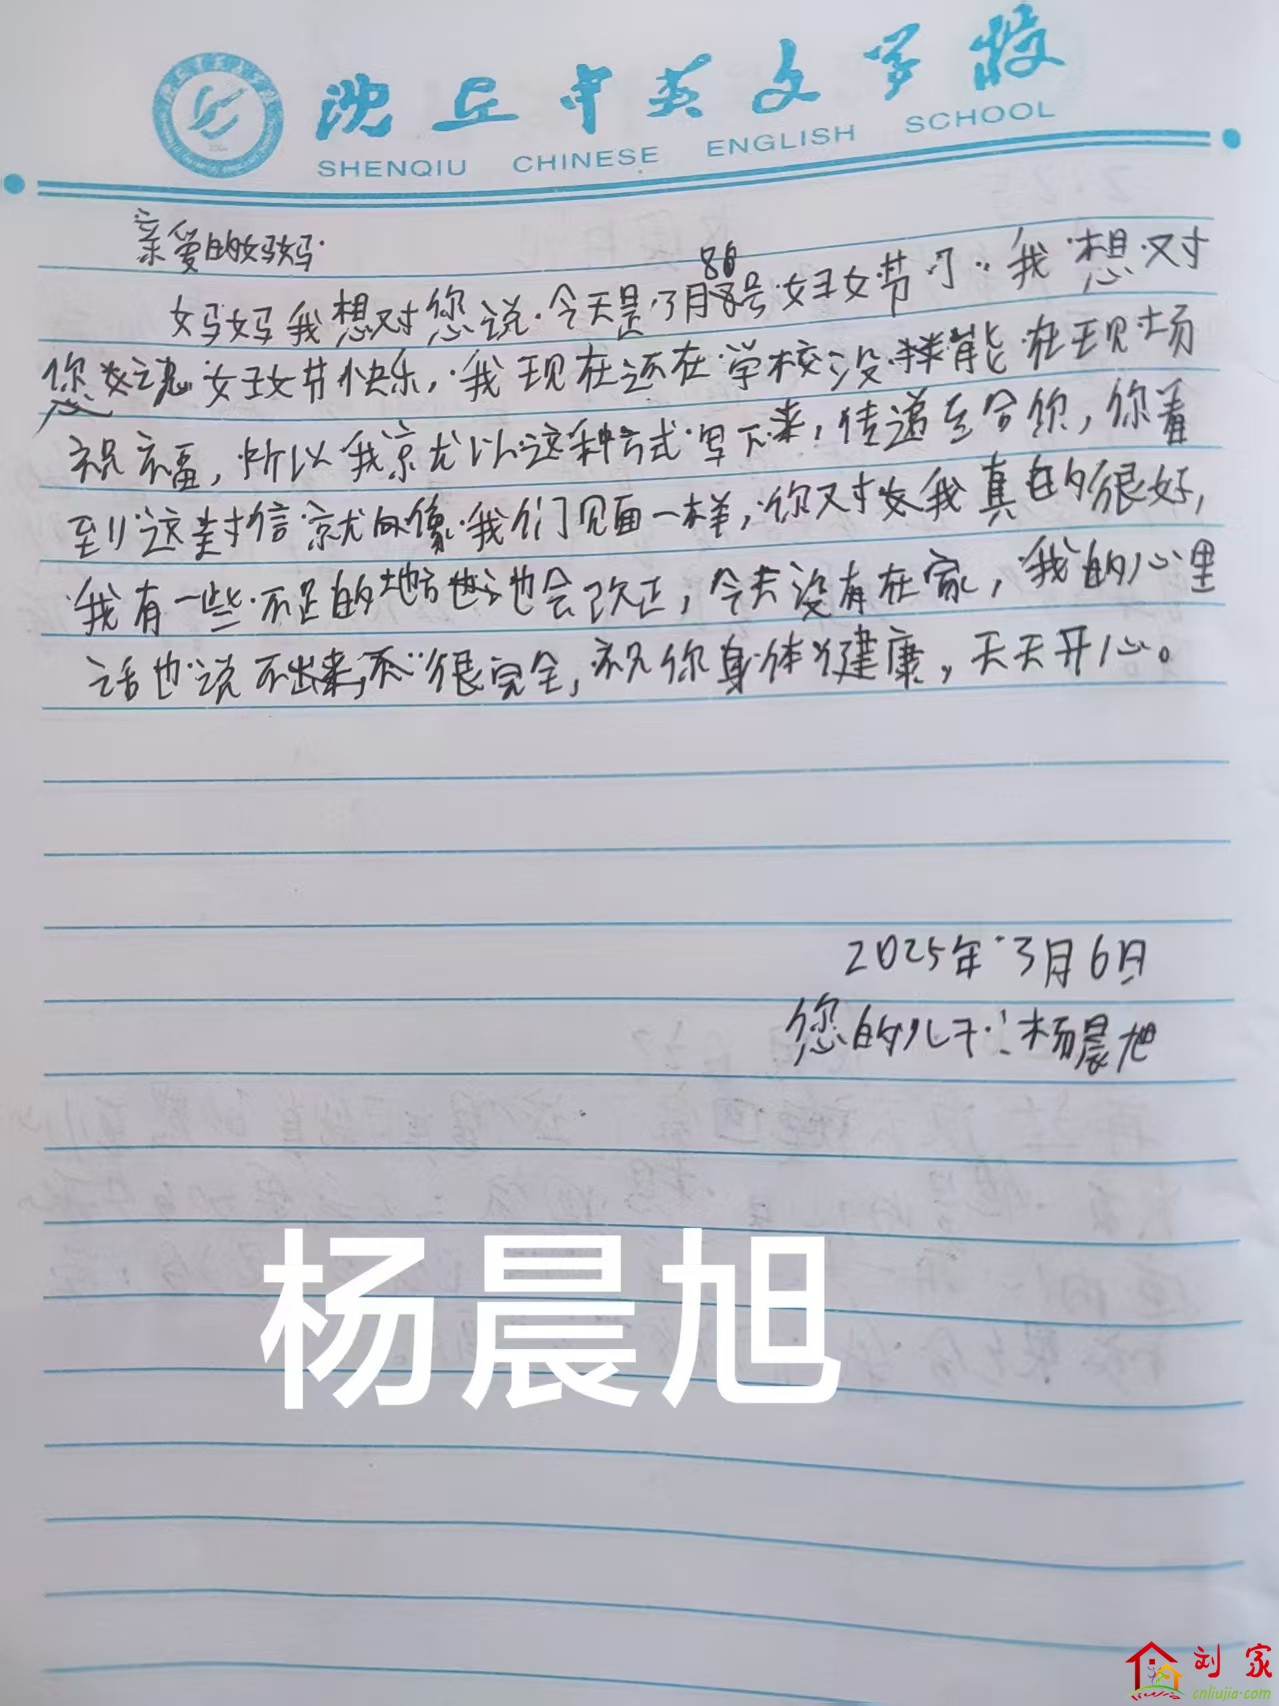 沈丘中英文学校
SHENQIU CHINESE ENGLISH SCHOOL
亲爱的妈妈.
妈妈我想对您说.今天是3月8号妇女节了.我想对
您说妇女节快乐,我现在还在学校没能在现场
祝福,所以我就以这种方式写下来,传递至给你,你看
到这封信就向像我们见面一样,你对我真的很好,
我有一些不足的地方也会改正,今天没有在家,我的心里
话也说不出来,不很完全,祝你身体健康,天天开心。
2025年3月6日
您的儿子:杨晨旭
杨晨旭
刘家
cnliujia.com